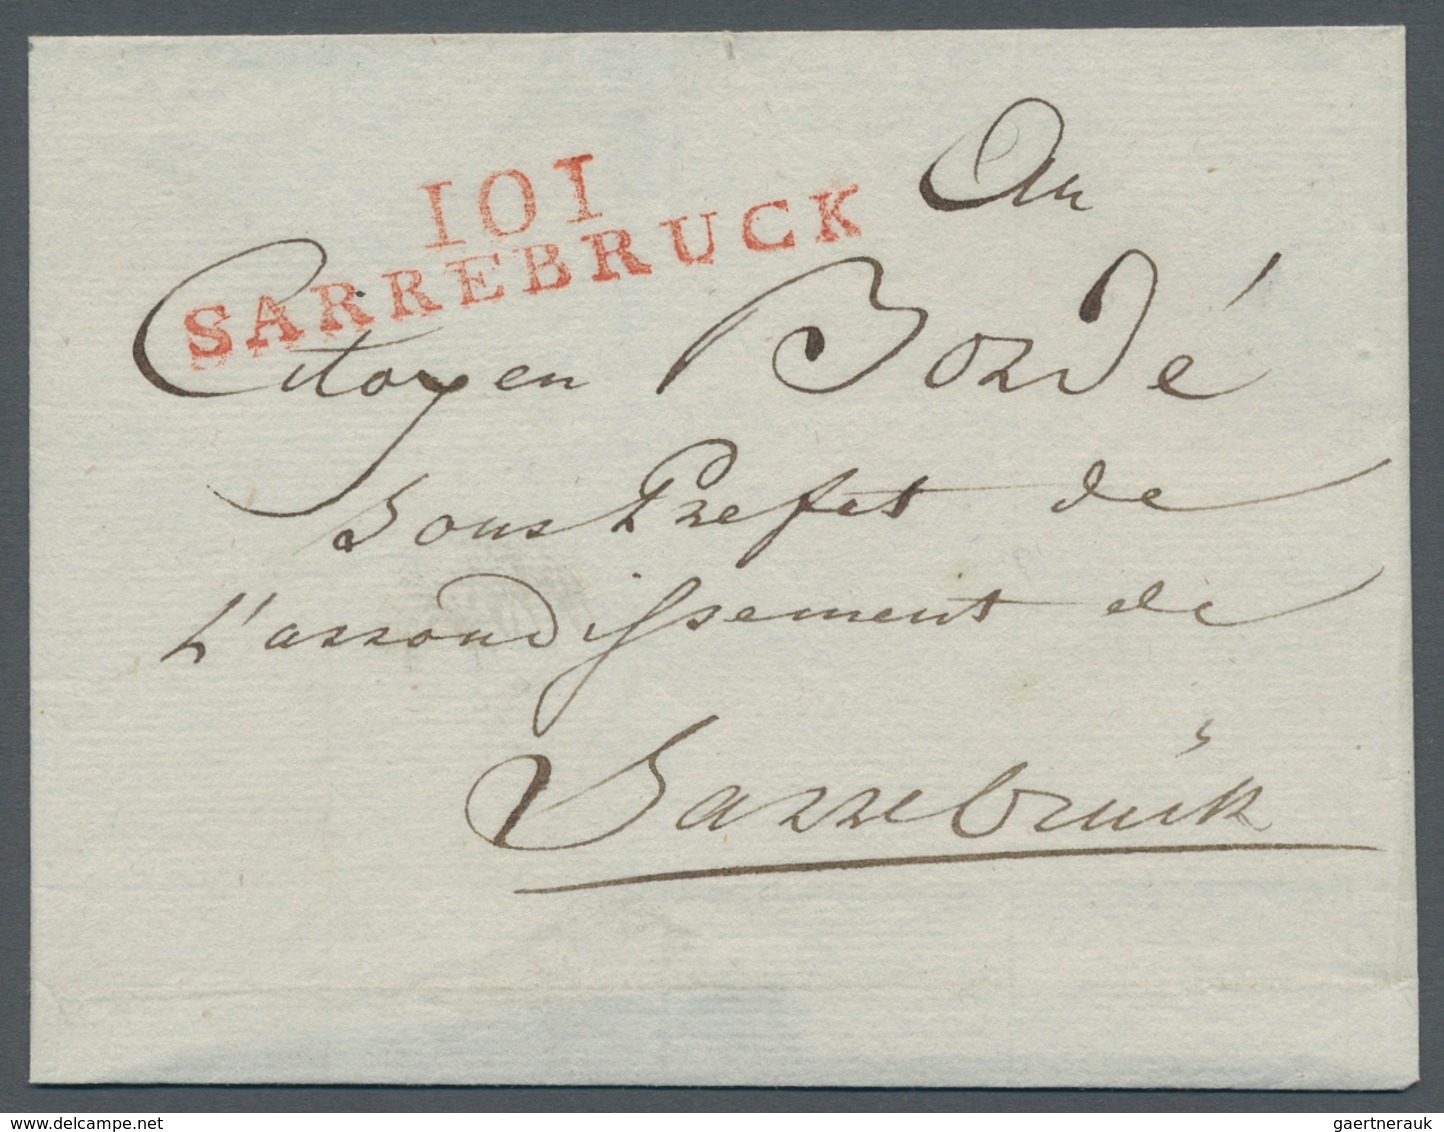 Au
101
SARREBRUCK
Citoyen Bordé
Sous Prefet de
L'arrondissement de
Sarrebruck
www.delcampe.net
gaertnerauk